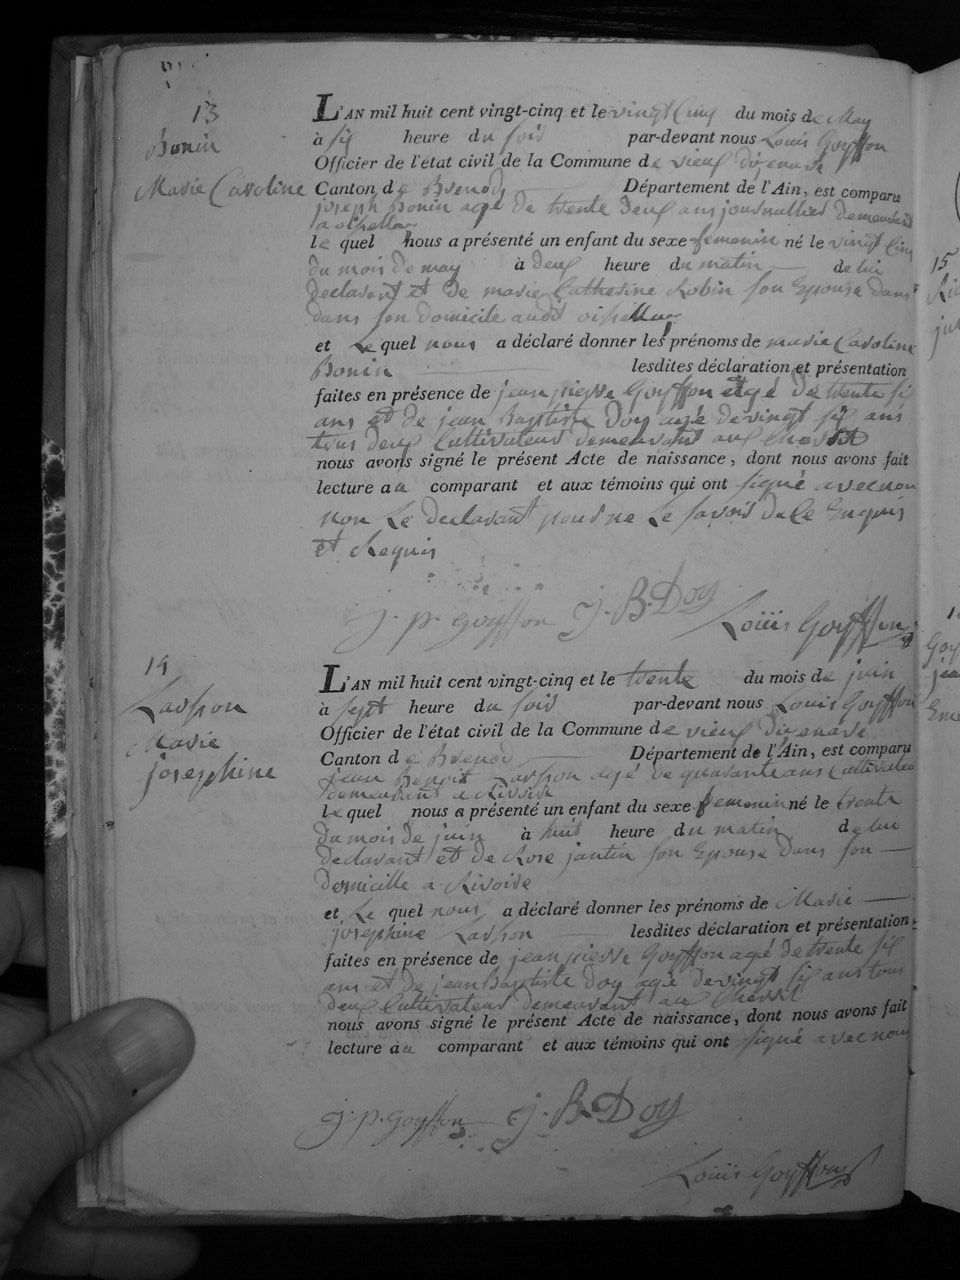 13
Bonin
Marie Caroline
L'AN mil huit cent vingt-cinq et le vingt Cinq du mois de May
à six heure du soir par-devant nous Louis Goyffon
Officier de l'état civil de la Commune de vieux d'izenave
Canton de Brenod Département de l'Ain, est comparu
joseph Bonin age de trente deux ans journallier demeurant
a
le quel nous a présenté un enfant du sexe femenin né le vingt Cinq
du mois de may à deux heure du matin de lui
declarant et de marie Catherine Robin son Epouse dans
dans son domicile audit
et Le quel nous a déclaré donner les prénoms de marie Caroline
Bonin lesdites déclaration et présentation
faites en présence de jean pierre Goyffon agé de trente six
ans et de jean Baptiste Doy agé de vingt six ans
tous deux Cultivateur demeurant aux
nous avons signé le présent Acte de naissance, dont nous avons fait
lecture au comparant et aux témoins qui ont signé avec nou
non Le declarant pour ne Le savoir de Ce Enquis
et Requis
j. p. goyffon J. B. Doy Loüis Goyffon
14
Larson
Marie
josephine
L'AN mil huit cent vingt-cinq et le trente du mois de juin
à sept heure du soir par-devant nous Louis Goyffon
Officier de l'état civil de la Commune de vieux d'izenave
Canton de Brenod Département de l'Ain, est comparu
jean Benoit agé de quarante ans Cultivateur
demeurant a Rivoire
le quel nous a présenté un enfant du sexe femenin né le trente
du mois de juin à huit heure du matin de lui
declarant et de Rose jantin son Epouse dans son
domicille a Rivoire
et Le quel nous a déclaré donner les prénoms de Marie
josephine lesdites déclaration et présentation
faites en présence de jean pierre Goyffon agé de trente six
ans et de jean Baptiste Doy agé de vingt six ans tous
deux Cultivateur demeurant aux
nous avons signé le présent Acte de naissance, dont nous avons fait
lecture au comparant et aux témoins qui ont signé avec nous
j. p. goyffon J. B. Doy
Loüis Goyffon
15